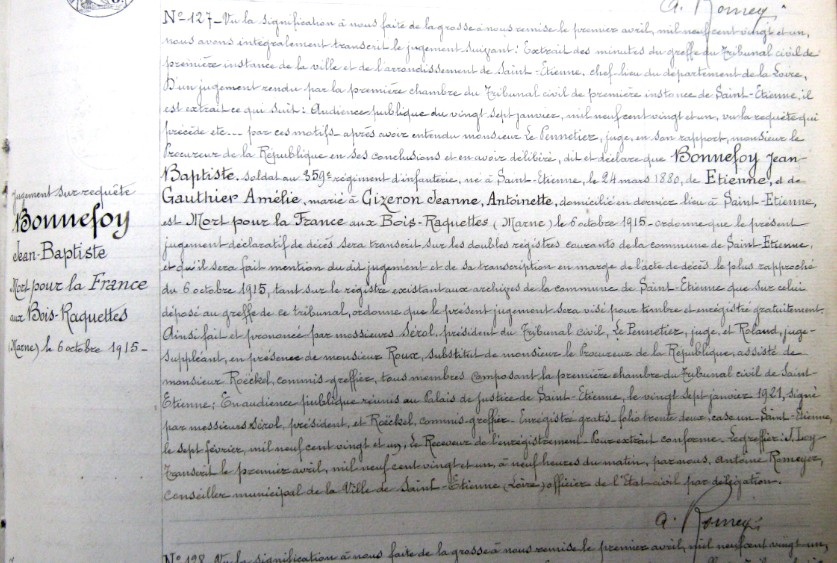 A. Romey
N° 127 - Vu la signification à nous faite de la grosse à nous remise le premier avril, mil neuf cent vingt et un,
nous avons intégralement transcrit le jugement suivant: Extrait des minutes du greffe du Tribunal civil de
première instance de la ville et de l'arrondissement de Saint-Etienne, chef-lieu du département de la Loire,
D'un jugement rendu par la première chambre du Tribunal civil de première instance de Saint-Etienne, il
est extrait ce qui suit: Audience publique du vingt sept janvier, mil neuf cent vingt et un, vu la requête qui
précède etc... par ces motifs après avoir entendu monsieur Le Pennetier, juge, en son rapport, monsieur le
Procureur de la République en ses conclusions et en avoir délibéré, dit et déclare que Bonnefoy Jean-
Baptiste, soldat au 359e régiment d'infanterie, né à Saint-Etienne, le 24 mars 1880, de Etienne, et de
Gauthier Amélie, marié à Gizeron Jeanne, Antoinette, domicilié en dernier lieu à Saint-Etienne,
est Mort pour la France aux Bois-Raquettes (Marne) le 6 octobre 1915 - ordonne que le présent
jugement déclaratif de décès sera transcrit sur les doubles registres courants de la commune de Saint-Etienne,
et qu'il sera fait mention du dit jugement et de sa transcription en marge de l'acte de décès le plus rapproché
du 6 octobre 1915, tant sur le registre existant aux archives de la commune de Saint-Etienne que sur celui
déposé au greffe de ce tribunal, ordonne que le présent jugement sera visé pour timbre et enregistré gratuitement.
Ainsi fait et prononcé par messieurs Sérol, président du Tribunal civil, Le Pennetier, juge, et Roland, juge-
suppléant, en présence de monsieur Roux, substitut de monsieur le Procureur de la République, assisté de
monsieur Roëckel, commis-greffier, tous membres composant la première chambre du Tribunal civil de Saint-
Etienne; En audience publique réunis au Palais de justice de Saint-Etienne, le vingt sept janvier 1921, signé
par messieurs Sérol, président, et Roëckel, commis-greffier - Enregistré gratis - folio trente deux, case un - Saint-Etienne,
le sept février, mil neuf cent vingt et un, Le Receveur de l'enregistrement - Pour extrait conforme - Le greffier:
Transcrit le premier avril, mil neuf cent vingt et un, à neuf heures du matin, par nous, Antoine Romeyer,
Conseiller municipal de la Ville de Saint-Etienne (Loire) officier de l'Etat civil par délégation.
A. Romey
Jugement sur requête
Bonnefoy
Jean-Baptiste
Mort pour la France
aux Bois-Raquettes
(Marne) le 6 octobre 1915 -
N° 128 - Vu la signification à nous faite de la grosse à nous remise le premier avril, mil neuf cent vingt un,